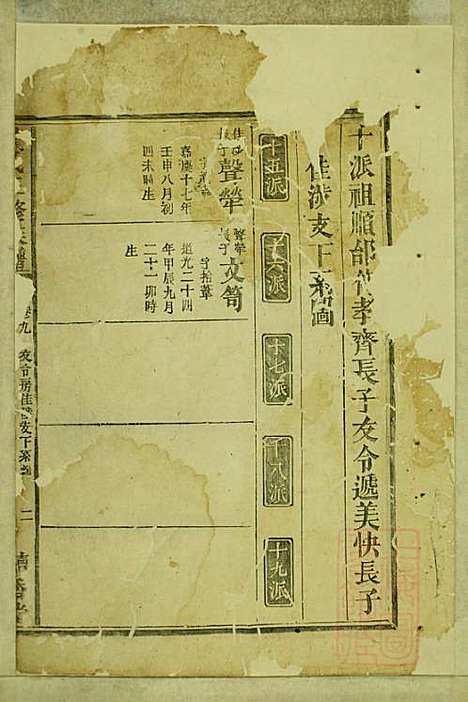 十派祖順部代孝齊長子友令遞美快長子
佳涉支下系圖
十五派
十六派
十七派
十八派
十九派
長子聲犖
嘉慶十七年
壬申八月初
四未時生
聲犖
長子文筍
字拾葦
道光二十四
年甲辰九月
二十一卯時
生
卷九
友令房佳涉支下系圖
二